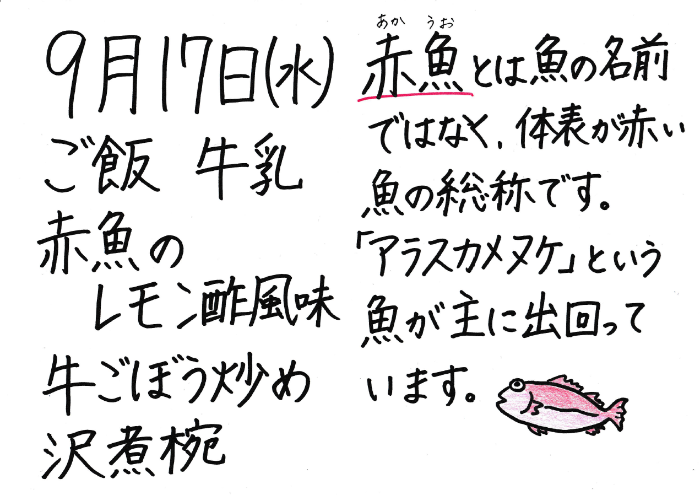 9月17日(水)
ご飯 牛乳
赤魚の
レモン酢風味
牛ごぼう炒め
沢煮椀
あか うお
赤魚とは魚の名前
ではなく、体表が赤い
魚の総称です。
「アラスカメヌケ」という
魚が主に出回って
います。